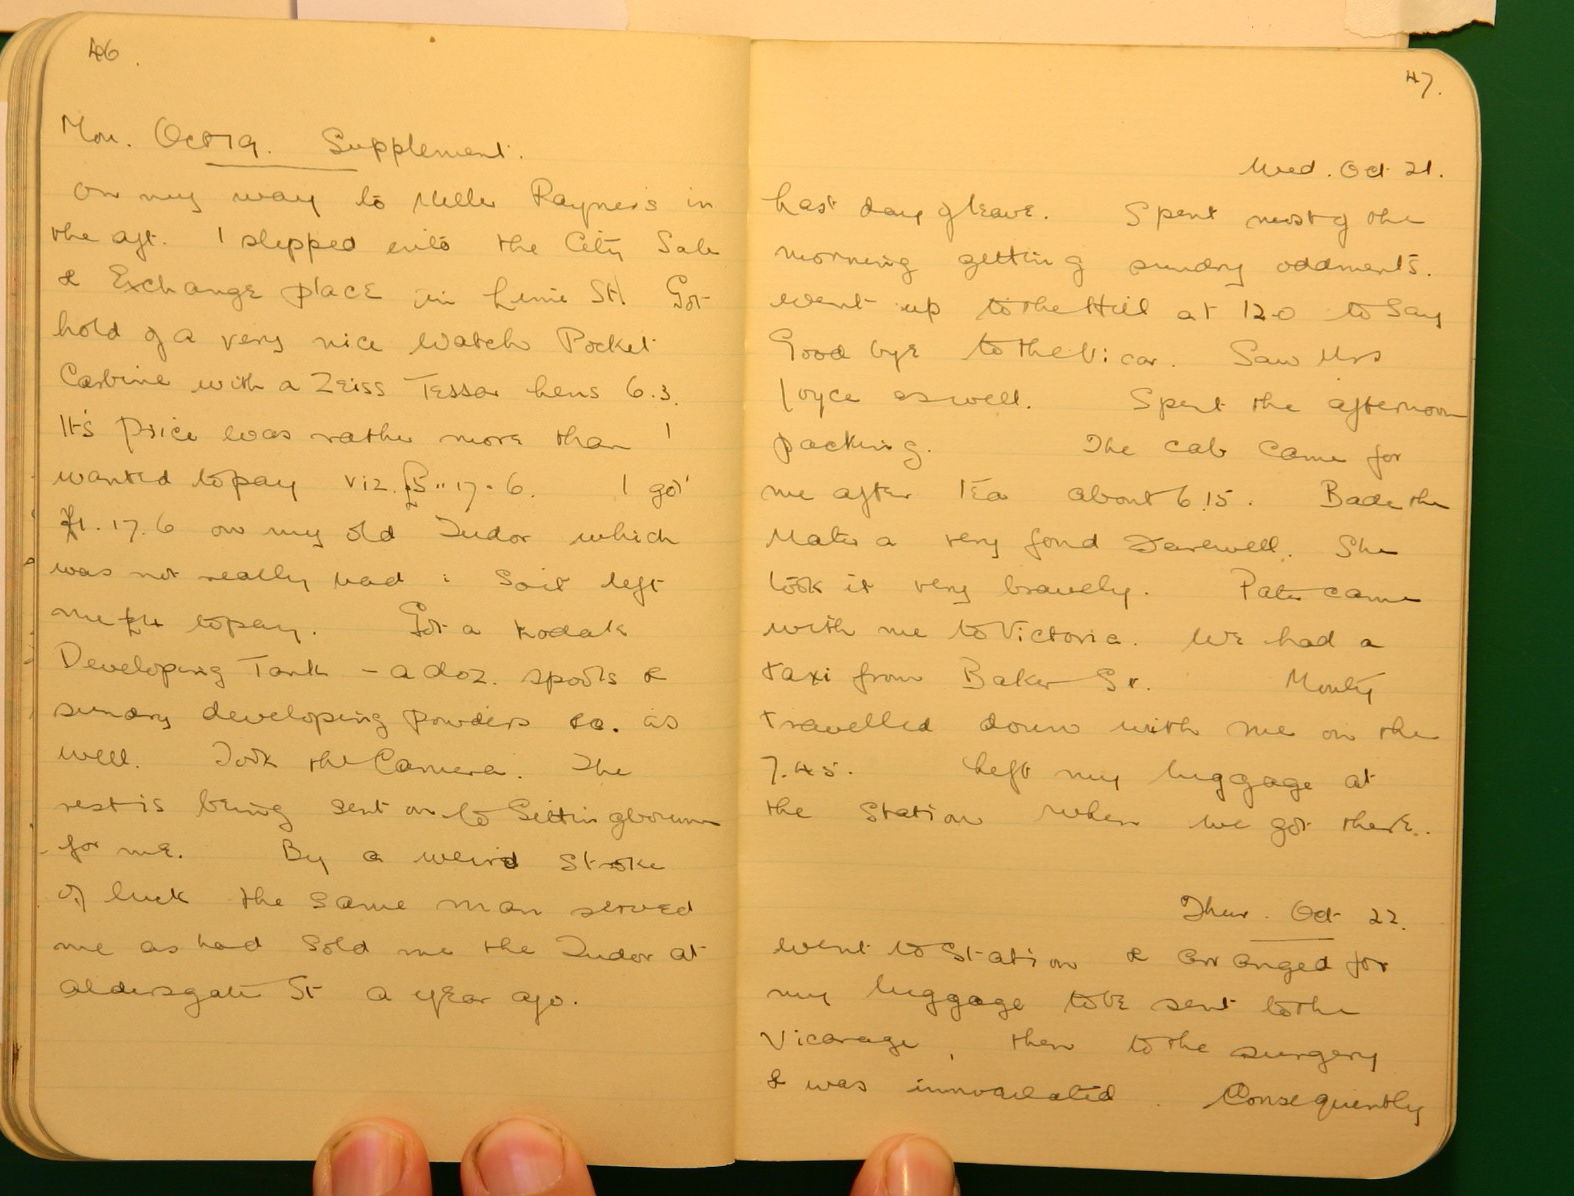 46.
Mon. Oct 19. Supplement.
On my way to Miller Rayner's in
the aft. I stepped into the City Sale
& Exchange place in Lime St. Got
hold of a very nice Watch Pocket
Carbine with a Zeiss Tessar Lens 6.3.
It's price was rather more than I
wanted to pay viz. £5 " 17 - 6. I got
£1. 17. 6 on my old Tudor which
was not really bad : So it left
me £4 to pay. Got a Kodak
Developing Tank - a doz. spools &
sundry developing powders &c. as
well. Took the Camera. The
rest is being sent on to Sittingbourne
for me. By a weird stroke
of luck the same man served
me as had sold me the Tudor at
Aldersgate St a year ago.
47.
Wed. Oct 21.
Last day of leave. Spent most of the
morning getting sundry oddments.
Went up to the Hill at 12.0 to Say
Good bye to the Vicar. Saw Mrs
Joyce as well. Spent the afternoon
packing. The cab came for
me after Tea about 6.15. Bade the
Mater a very fond Farewell. She
took it very bravely. Pater came
with me to Victoria. We had a
taxi from Baker St. Monty
travelled down with me on the
7.45. Left my luggage at
the Station when we got there.
Thur. Oct 22.
Went to Station & arranged for
my luggage to be sent to the
Vicarage, then to the surgery
& was innoculated. Consequently